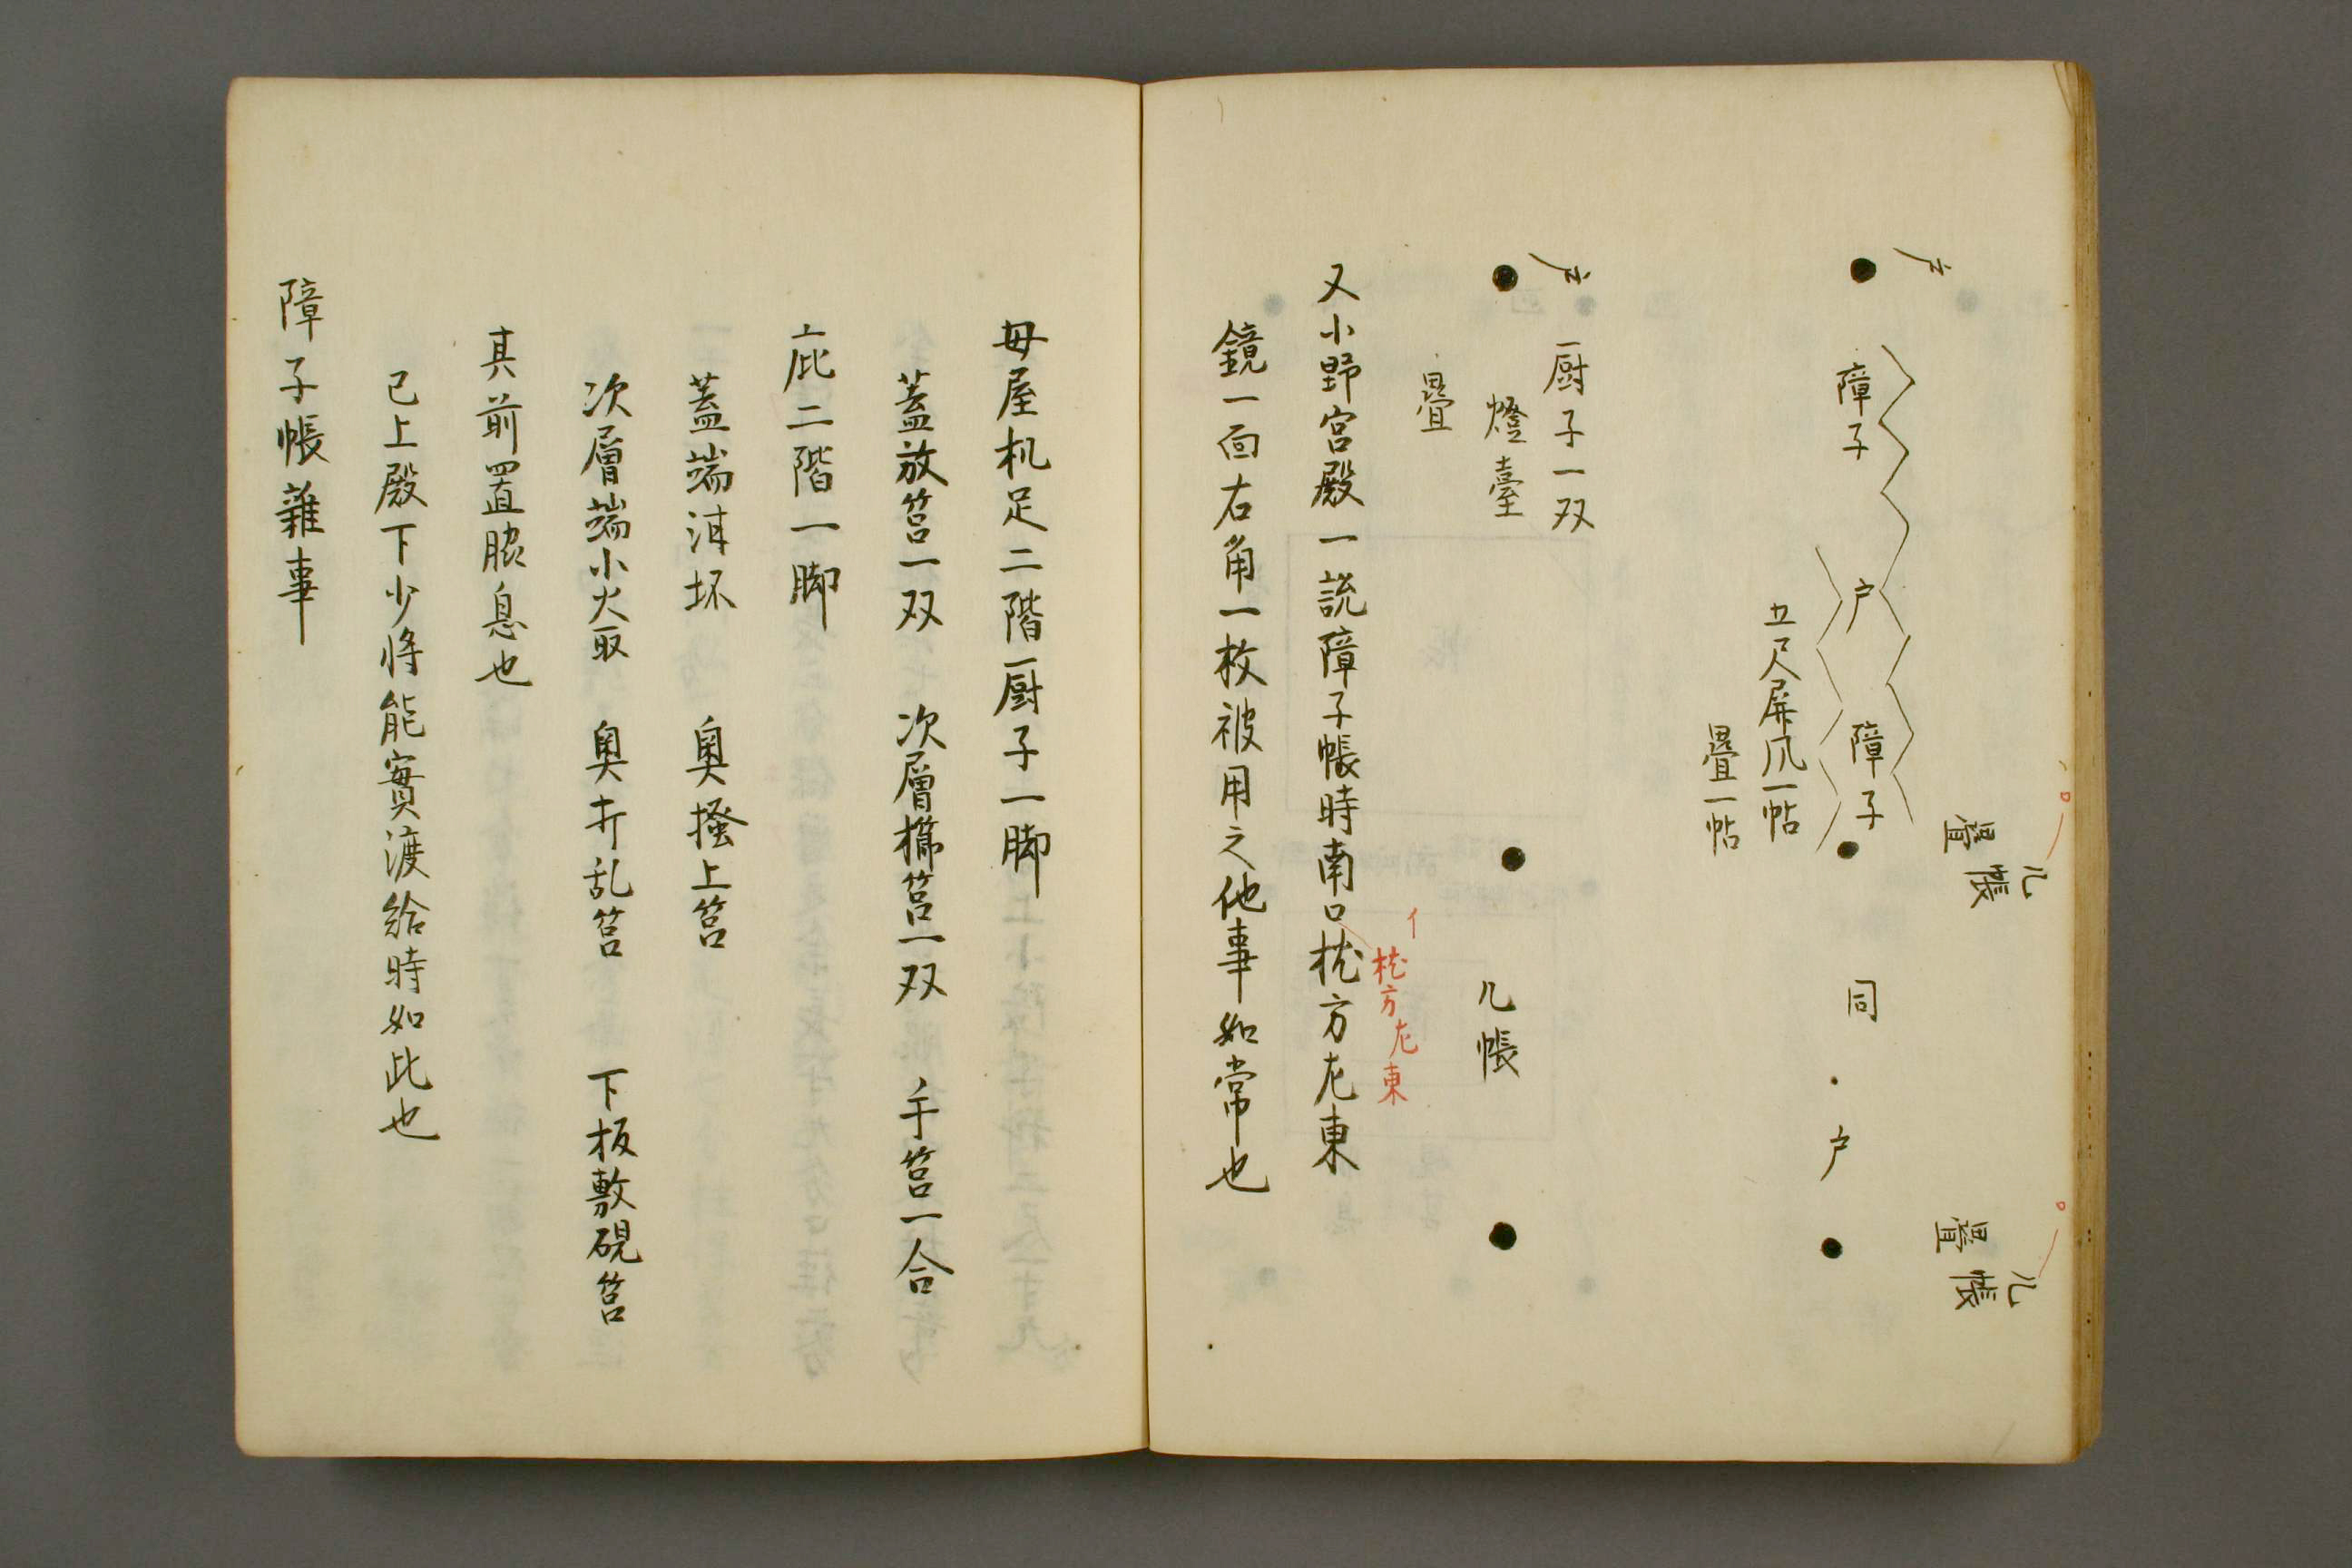 几帳
疊
几帳
疊
戸
障子
戸
障子
同
戸
五尺屏風一帖
疊一帖
戸
厨子一双
燈臺
几帳
疊
イ
枕方左東
又小野宮殿一説障子帳時南口枕方左東
鏡一面右角一枚被用之他事如常也
母屋机足二階厨子一脚
蓋放筥一双 次層櫛筥一双 手筥一合
庇二階一脚
蓋端泔坏 奥掻上筥
次層端小火取 奥打乱筥 下板敷硯筥
其前置脇息也
已上殿下少将能實渡給時如此也
障子帳雜事